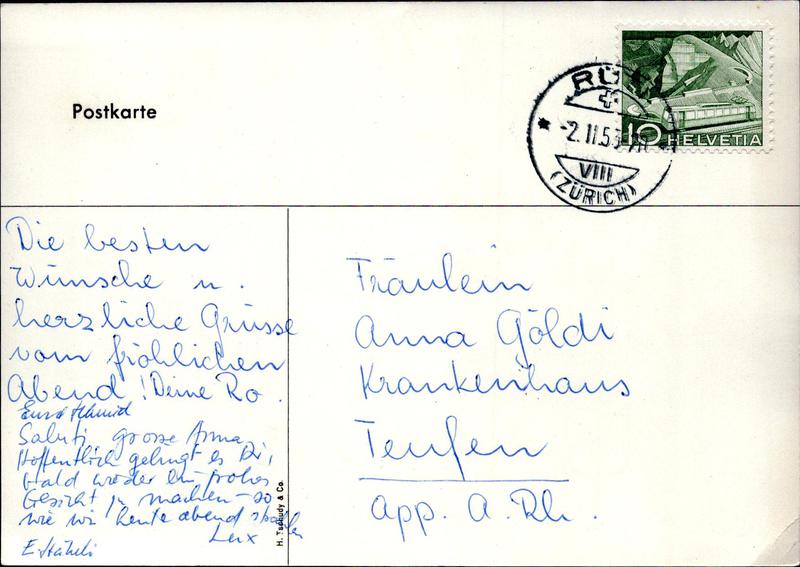 Postkarte
RÜ
-2.11.5
VIII
(ZÜRICH)
10 HELVETIA
Die besten
Wünsche u.
herzliche Grüsse
vom fröhlichen
Abend! Deine Ro.
Saluti, grosse Anna,
Hoffentlich gelingt es Dir,
bald wieder ein frohes
Gesicht zu machen - so
wie wir heute abend
E. Stäheli
H. Tschudy & Co.
Fräulein
Anna Göldi
Krankenhaus
Teufen
App. A. Rh.